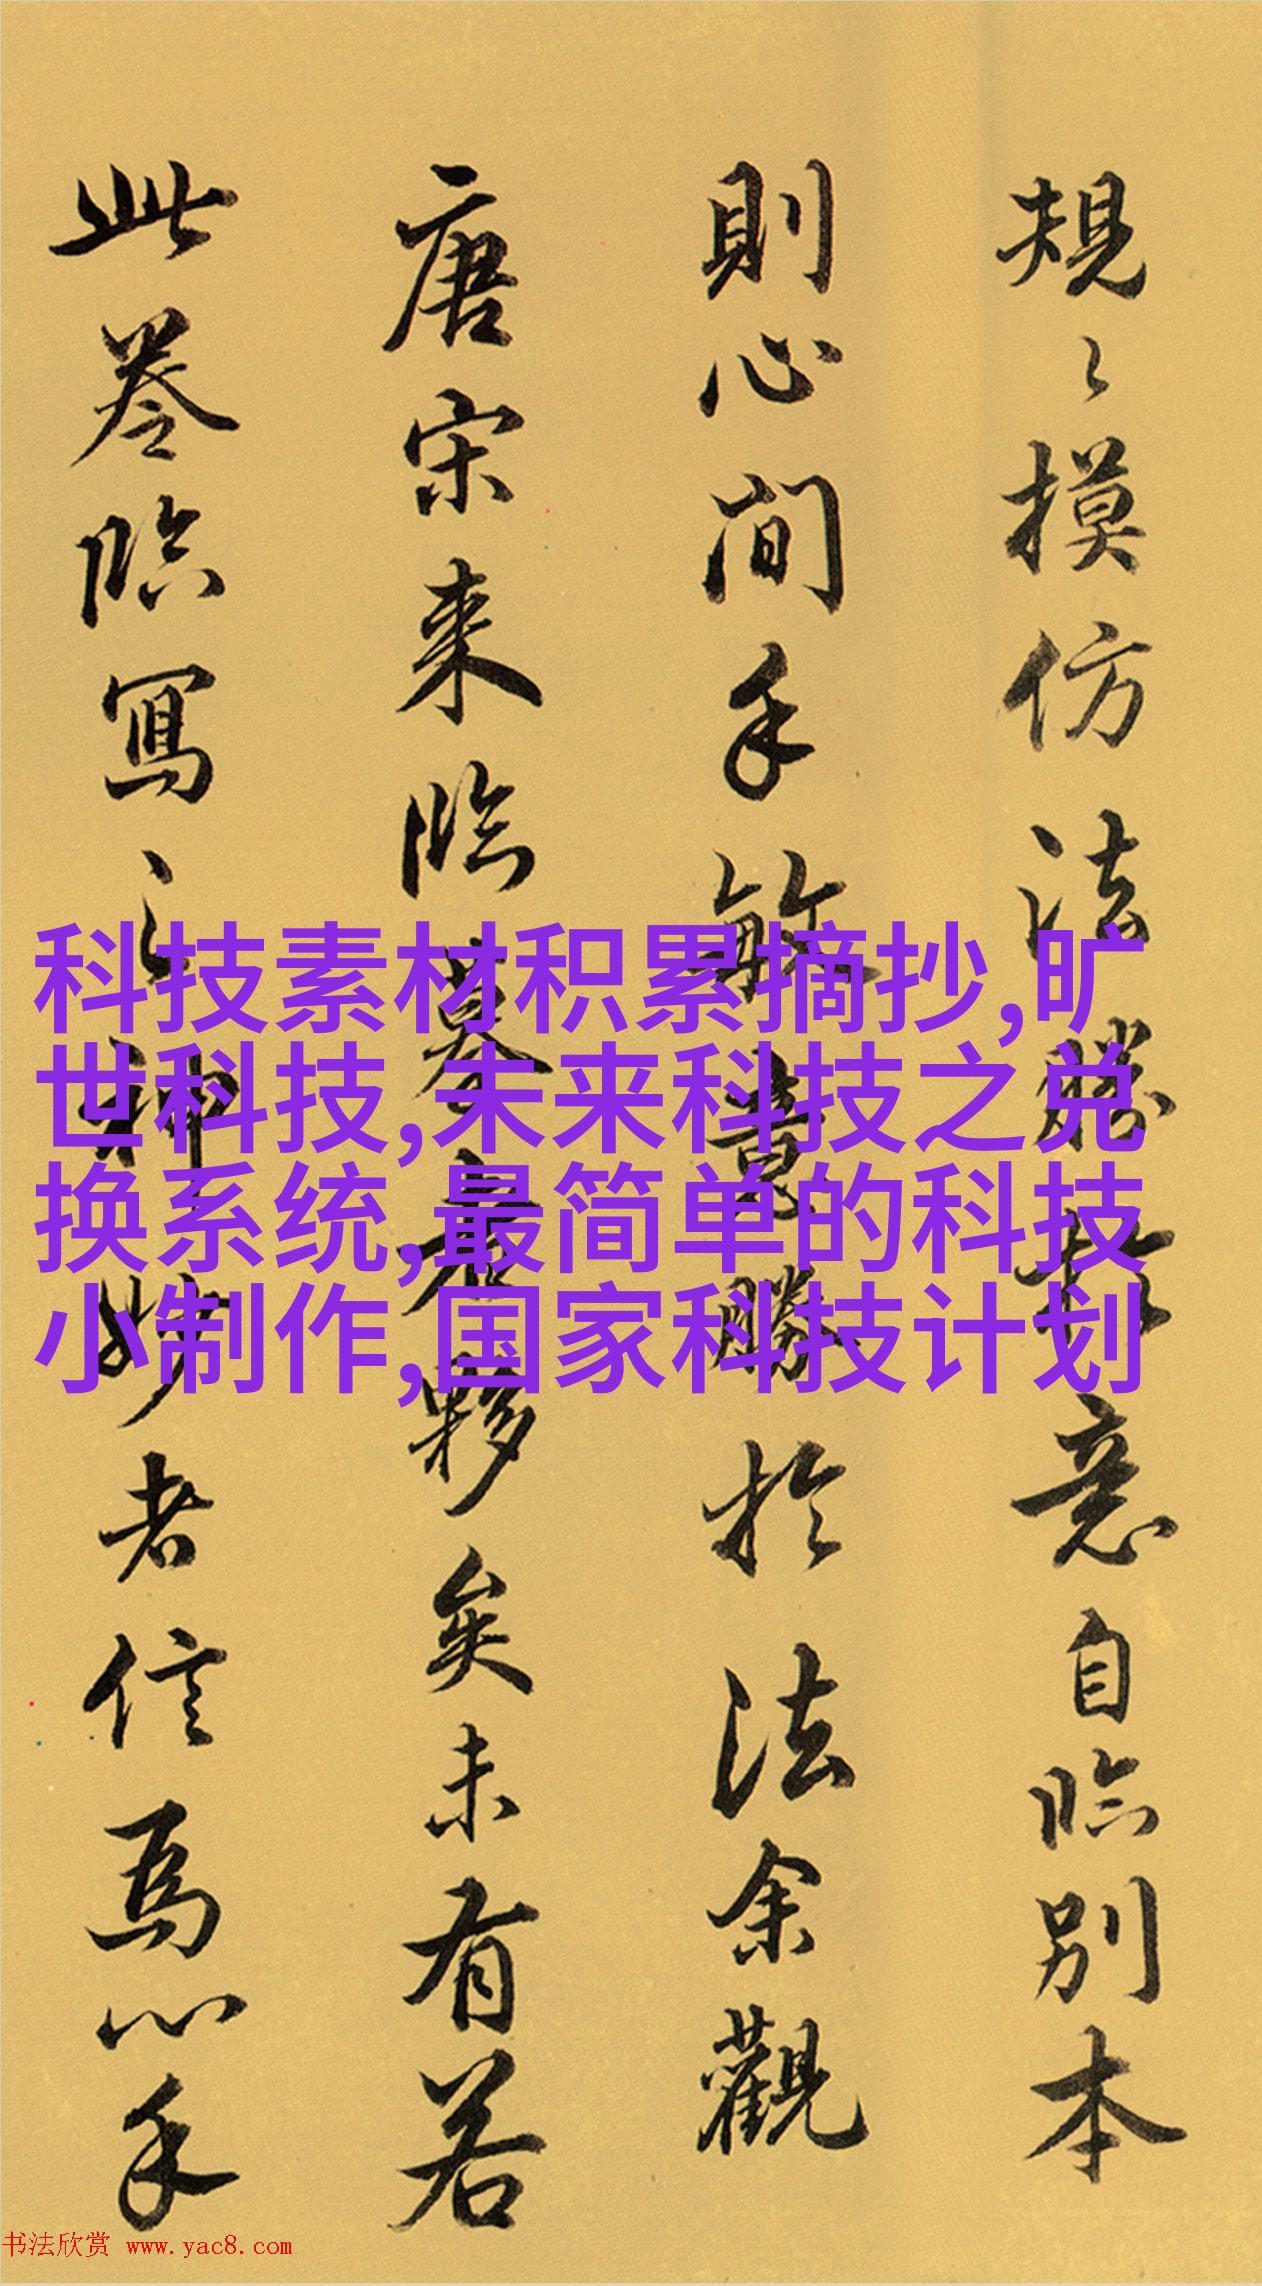 規〻摸仿法勝於意自臨别本
則心間手敏意勝於法余觀
唐宋来臨摹者夥矣未有若
此卷臨寫之神妙者信焉心手
科技素材积累摘抄,旷
世科技,未来科技之兑
换系统,最简单的科技
小制作,国家科技计划
书法欣赏 www.yac8.com